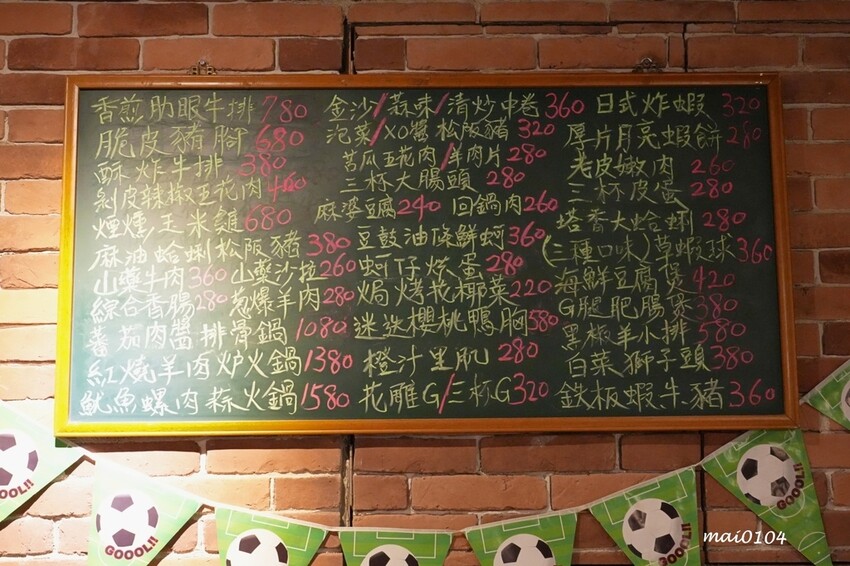 香煎肋眼牛排780
脆皮豬腳680
酥炸牛排380
剝皮辣椒五花肉460
煙燻玉米雞680
麻油蛤蜊松阪豬380
山藥牛肉360 山藥沙拉260
綜合香腸280 蔥爆羊肉280
蕃茄肉醬排骨鍋1080
紅燒羊肉炉火鍋1380
魷魚螺肉蒜火鍋1580
金沙/蒜味/清炒中卷360
泡菜/XO醬松阪豬320
苦瓜五花肉/羊肉片280
三杯大腸頭280
麻婆豆腐240 回鍋肉260
豆鼓油條鮮蚵360
蚵仔烘蛋280
焗烤花椰菜220
迷迭櫻桃鴨胸580
橙汁里肌280
花雕G/三杯G320
日式炸蝦320
厚片月亮蝦餅280
老皮嫩肉260
三杯皮蛋280
塔香大蛤蜊280
(三種口味)草蝦球360
海鮮豆腐煲420
G腿肥腸煲380
黑椒羊小排580
白菜獅子頭380
鉄板蝦.牛.豬360
GOOOL!!
GOOOL!!
GOOOL!!
GOOOL!!
mai0104